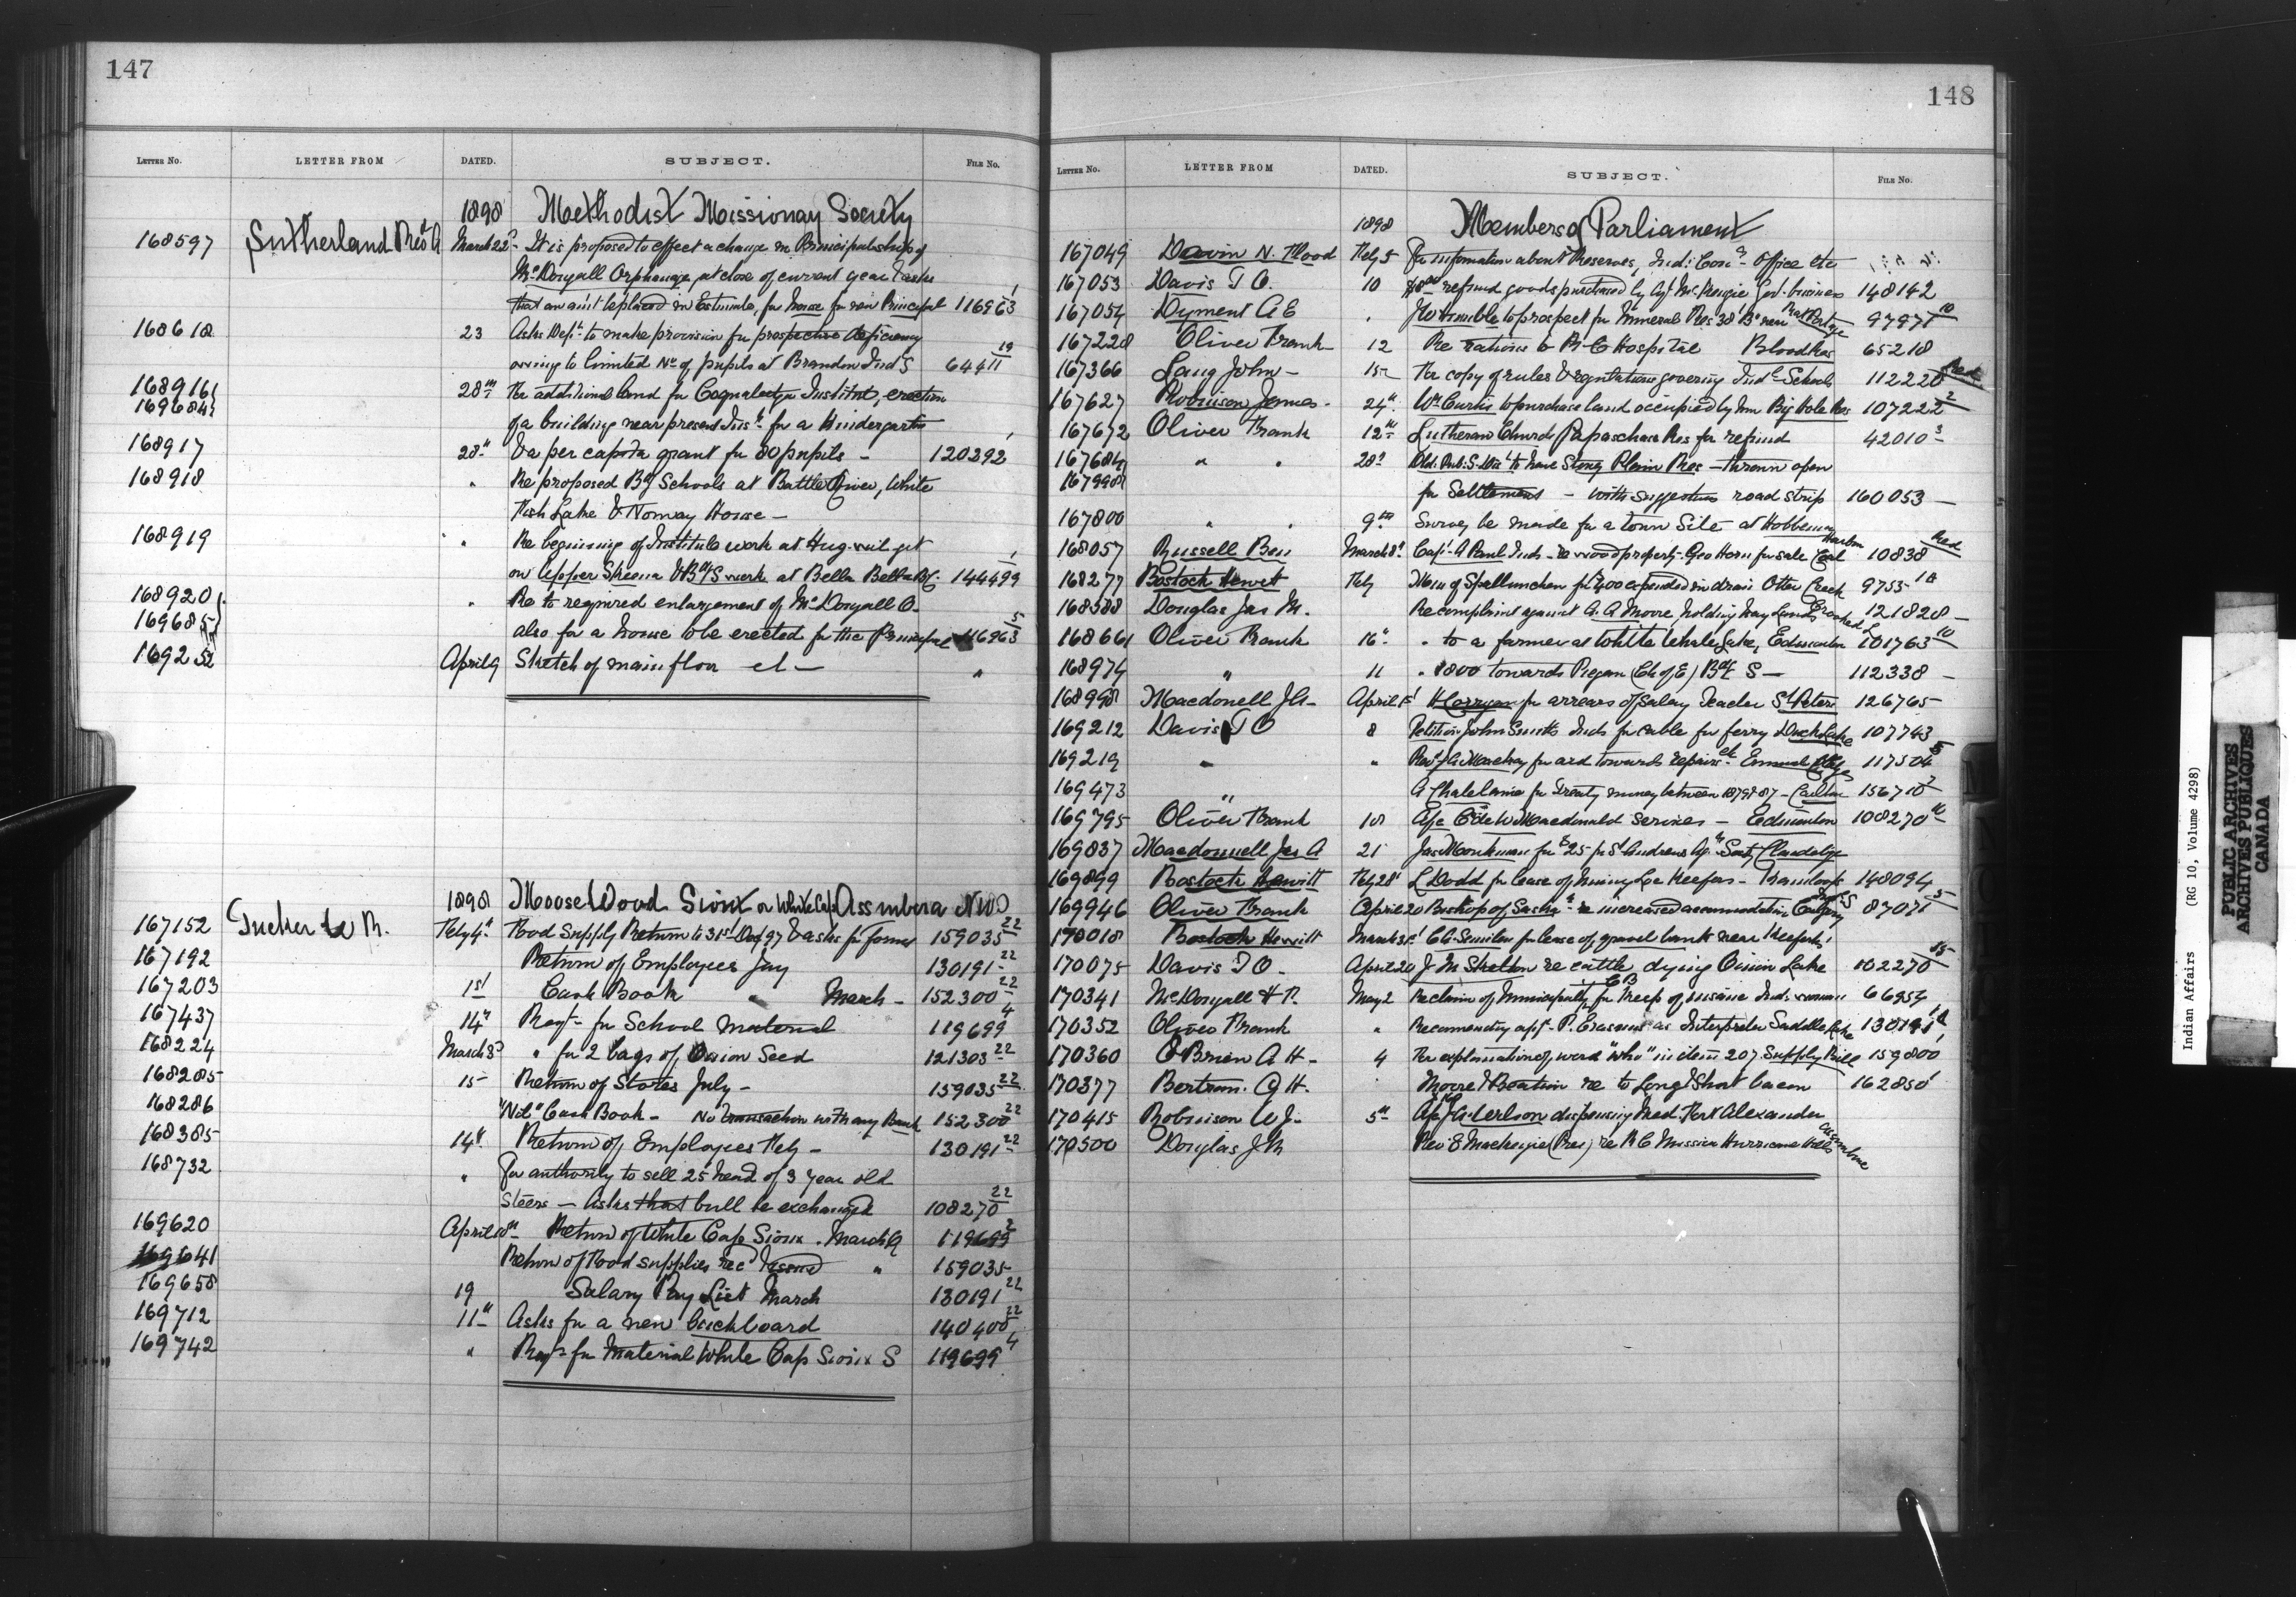 147
LETTER NO. LETTER FROM DATED. SUBJECT. FILE NO.
1898 Methodist Missionary Society
168597 Sutherland Revd A March 22d It is proposed to effect a change in Principalship of
McDougall Orphanage, at close of current year & asks
that an amt be placed in Estimates, for house for new Principal 116963 1
168618 23 Asks Dept to make provision for prospective deficiency
owing to limited No of pupils at Brandon Ind S 64411 19
168916 28th For additional land for Coqualeetza Institut, erection
169684 of a building near present Inst for a Kindergarten
168917 28th & a per capita grant for 80 pupils - 120292 1
168918 " Re proposed Bg Schools at Battle River, White
Fish Lake & Norway House -
168919 " Re beginning of Institute work at Hag-wil-get
on Upper Skeena & Bdg S work at Bella Bella B.C. 144499 1
168920 " Re to required enlargement of McDougall O.
169685 also for a house to be erected for the Principal 116963 5
169252 April 9 Sketch of main floor et - "
1898 Moose Wood Sioux or White Cap Assinboia NWT
167152 Tucker W R. Feby 4th Food Supply Return to 31st Dec 97 & asks for forms 159035 22
167192 Return of Employees Jny 130191 22
167203 1st Cash Book " March - 152300 22
167437 14th Reqt for School Material 119699 4
168224 March 3d " for 2 bags of Onion Seed 121303 22
168285 15 Return of Stores July - 159035 22
168286 "Nil" Cash Book - No transaction with any Bank 152300 22
168385 14th Return of Employees Feby - 130191 22
168732 " For authority to sell 25 head of 3 year old
Steers - Asks that bull be exchanged 108270 22
169620 April 10th Return of White Cap Sioux . March Q 119699 2
169641 Return of Food supplies recd & issued " 159035
169658 19 Salary Pay List March 130191 22
169712 11th Asks for a new buckboard 140400 22
169742 " Reqt for Material White Cap Sioux S 119699 4
148
LETTER NO. LETTER FROM DATED. SUBJECT. FILE NO.
1898 Members of Parliament
167049 Davin N. Flood Feby 5 For information about Reserves, Ind: Comr Office etc
167053 Davis T O. 10 refund goods purchased by Agt McKenzie Govt business 148142
167054 Dyment A E " to prospect for Mineral Res 38 B near Rat Portage 97971 10
167228 Oliver Frank 12 Re rations to R-C Hospital Blood Res 65218
167366 Lang John - 15 For copy of rules & regulations governing Indl Schools 112220 Red
167627 Robinson James - 24th Wm Curtis to purchase land occupied by him Big Hole Res 107222 2
167672 Oliver Frank 12th Lutheran Church Papaschase Res for refund 42010 3
167684 " " 28th to have Stony Plain Res - thrown open
167998 for Settlement - with suggestions road strip 160053 -
167800 " " 9th Survey be made for a town Site at Hobbema
168057 Russell Ben March 8th Capt A Paul Inds - re wood property Geo Horn for sale Cod Harbor 10838 Red
168277 Bostock Hewitt Feby Mem of Spellumcheen for $400 expended in drain Otter Creek 9755 10
168588 Douglas Jas M. Re complaint against A. A Moore, holding hay lands Crooked L 121828 -
168661 Oliver Frank 16th " to a farmer at White Whale Lake, Edmonton 101763 10
168974 " 11 " $800 towards Piegan (Ch of E) Bdg S - 112338 -
168998 Macdonell J A - April 1st for arrears of Salary Teacher St Peters 126765
169212 Davis T O 8 Petition John Smiths Inds for cable for ferry Duck Lake 107743
169219 " " Revd J A Mackay for aid towards repairs etc Emmanuel College 117504 5
169473 " A Chatelaine for Treaty money between 1879 & 87 - Carlton 156710 2
169795 Oliver Frank 18 A/c E de W Macdonald Services - Edmonton 108270 10
169837 Macdonnell Jas A 21 Jas Monkman for $25 for St Andrews Clandeboye
169899 Bostock Hewitt Feby 28th L Dodd for lease of Mining Keefers - Kamloops 148094
169946 Oliver Frank April 20 Bishop of Saska re increased accommodation Calgary Ind S 87071 5
170018 Bostock Hewitt March 31st C A Semlin for lease of gravel bank near Keefers
170075 Davis T O - April 20 J M Skelton re cattle dying Onion Lake 102270 15
170341 McDougall H F. May 2 Reclaim of Municipality C B for Keep of insane Ind. woman 66954
170352 Oliver Frank " Recommending appt P. Erasmus as Interpreter Saddle Lake 130191
170360 O'Brien A H - 4 For explanation of word "Who" in item 207 Supply Bill 159800 1
170377 Bertram G H. " Moore & Boation re to Long & Short bacon 162850 1
170415 Robinson W J - 5th dispensing Med. Fort Alexander
170500 Douglas J M Rev E Mackenzie (Pres) re R C Mission Hurricane Hills Assiniboine
Indian Affairs (RG 10, Volume 4298)
PUBLIC ARCHIVES
ARCHIVES PUBLIQUES
CANADA